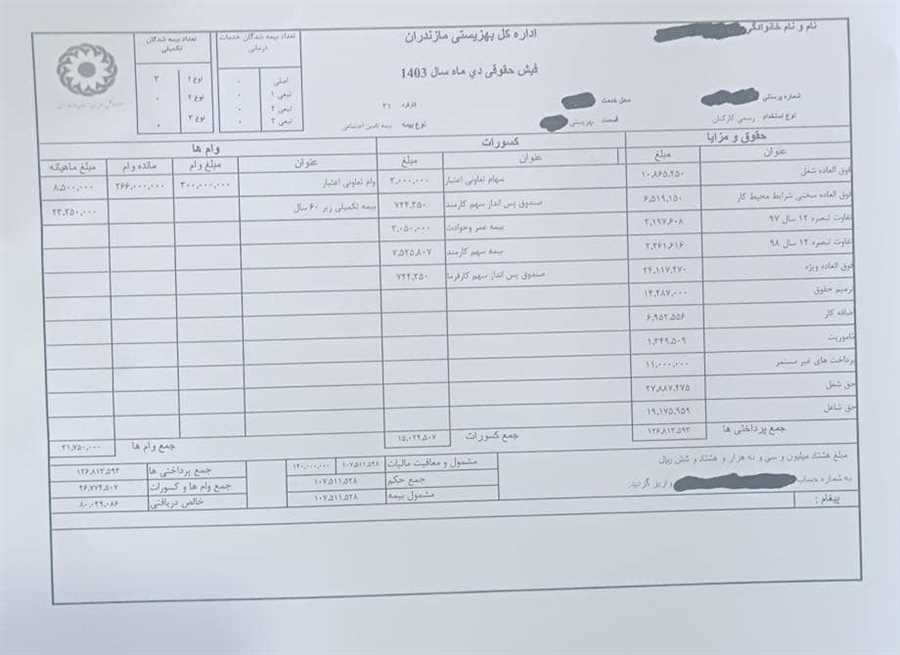 نام و نام خانوادگی
اداره کل بهزیستی مازندران
فیش حقوقی دی ماه سال 1403
تعداد بیمه شدگان خدمات درمانی
اصلی ۰
تبعی ۱ ۰
تبعی ۲ ۰
تبعی ۳ ۰
تعداد بیمه شدگان تکمیلی
نوع ۱ ۳
نوع ۲ ۰
نوع ۳ ۰
شماره پرسنلی
محل خدمت
نوع استخدام رسمی کارکنان
قسمت بهزیستی
نوع بیمه بیمه تامین اجتماعی
حقوق و مزایا
کسورات
وام ها
عنوان مبلغ عنوان مبلغ عنوان مبلغ وام مانده وام مبلغ ماهیانه
فوق العاده شغل ۱۰,۸۶۵,۲۵۰ سهام تعاونی اعتبار ۳,۰۰۰,۰۰۰ وام تعاونی اعتبار ۳۰۰,۰۰۰,۰۰۰ ۲۶۶,۰۰۰,۰۰۰ ۸,۵۰۰,۰۰۰
فوق العاده سختی شرایط محیط کار ۶,۵۱۹,۱۵۰ صندوق پس انداز سهم کارمند ۷۲۴,۳۵۰ بیمه تکمیلی زیر ۶۰ سال ۲۳,۲۵۰,۰۰۰
تفاوت تبصره ۱۲ سال ۹۷ ۲,۱۹۷,۶۰۸ بیمه عمر وحوادث ۳,۰۵۰,۰۰۰
تفاوت تبصره ۱۲ سال ۹۸ ۲,۲۶۱,۶۱۶ بیمه سهم کارمند ۷,۵۲۵,۸۰۷
فوق العاده ویژه ۲۴,۱۱۷,۴۷۰ صندوق پس انداز سهم کارفرما ۷۲۴,۳۵۰
ترمیم حقوق ۱۴,۴۸۷,۰۰۰
اضافه کار ۶,۹۵۲,۵۵۶
ماموریت ۱,۳۴۹,۵۰۹
پرداخت های غیر مستمر ۱۱,۰۰۰,۰۰۰
حق شغل ۲۷,۸۸۷,۴۷۵
حق شاغل ۱۹,۱۷۵,۹۵۹
جمع پرداختی ها ۱۲۶,۸۱۳,۵۹۳ جمع کسورات ۱۵,۰۲۴,۵۰۷ جمع وام ها ۳۱,۷۵۰,۰۰۰
مبلغ هشتاد میلیون و سی و نه هزار و هشتاد و شش ریال
به شماره حساب واریز گردید.
مشمول و معافیت مالیات ۱۰۷,۵۱۱,۵۲۸ ۱۲۰,۰۰۰,۰۰۰
جمع حکم ۱۰۷,۵۱۱,۵۲۸
مشمول بیمه ۱۰۷,۵۱۱,۵۲۸
جمع پرداختی ها ۱۲۶,۸۱۳,۵۹۳
جمع وام ها و کسورات ۴۶,۷۷۴,۵۰۷
خالص دریافتی ۸۰,۰۳۹,۰۸۶
پیغام :